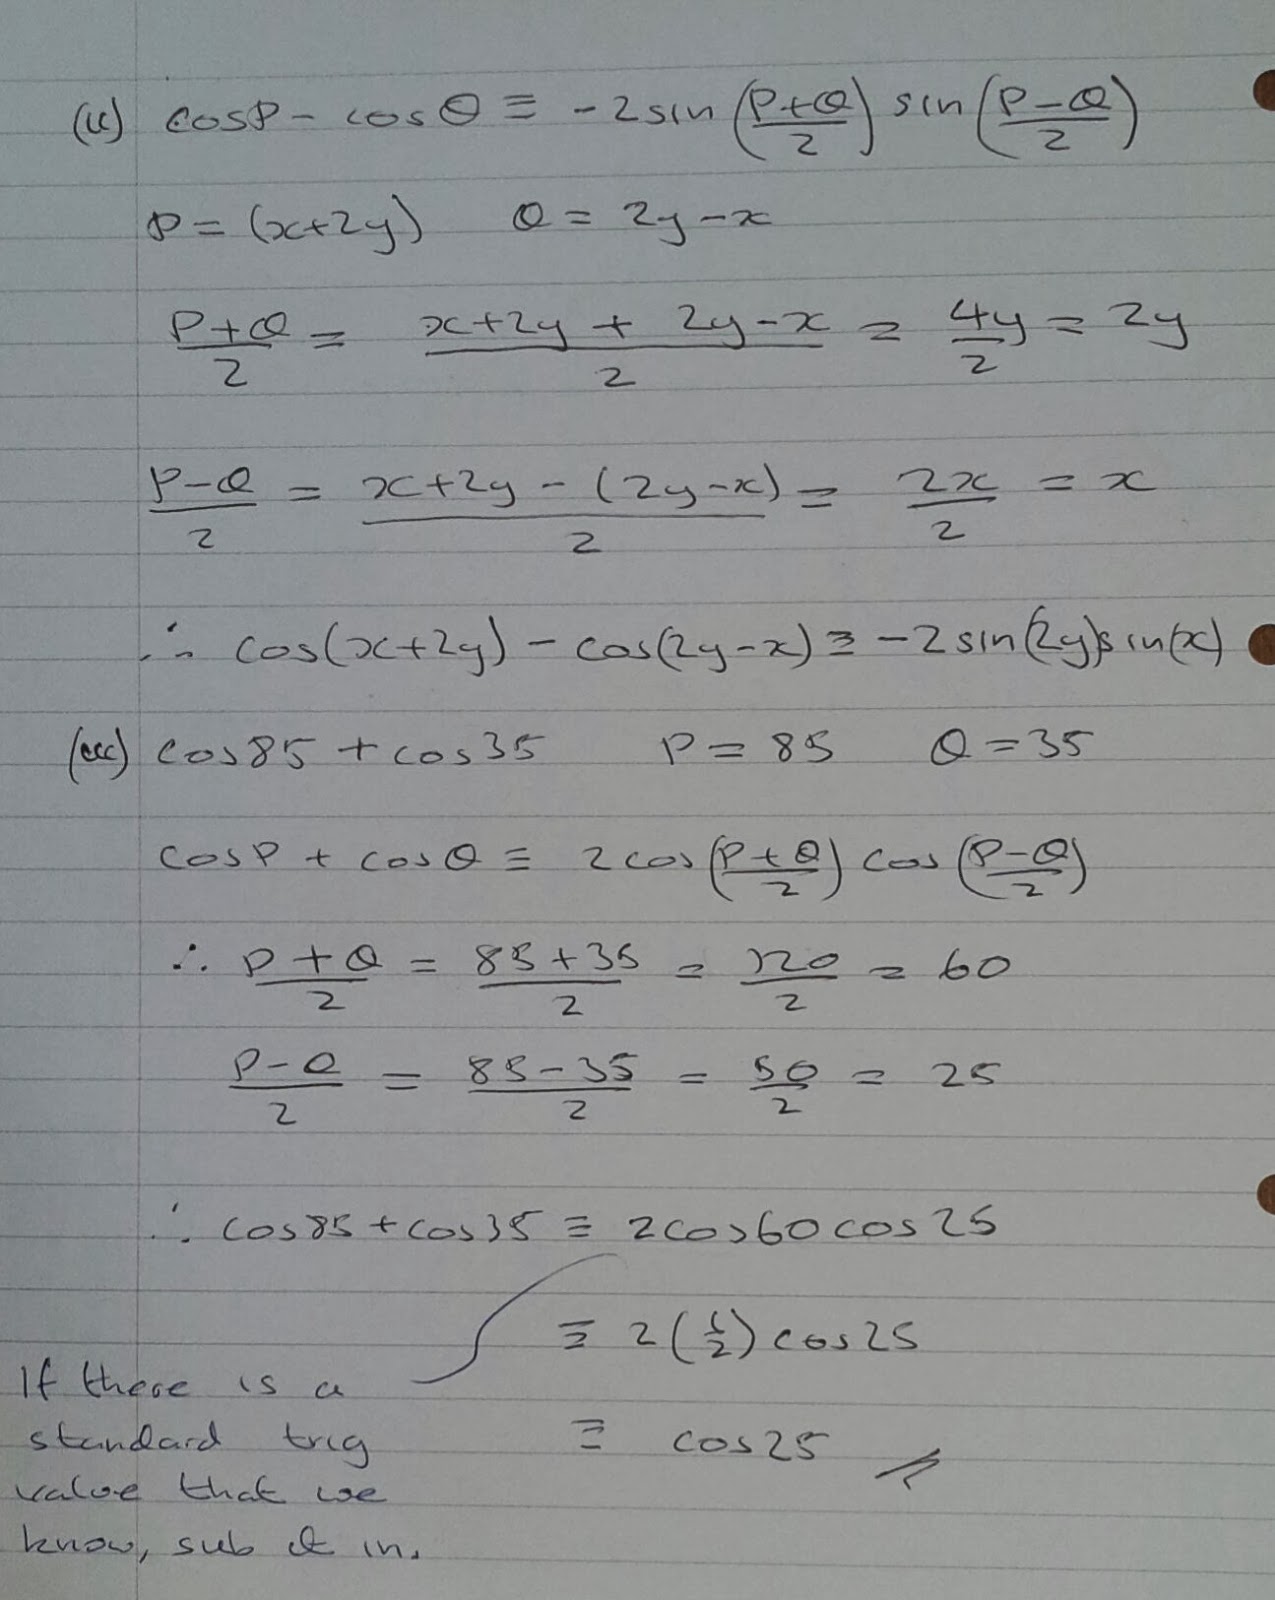 (ii) cosP - cosQ ≡ -2sin((P+Q)/2) sin((P-Q)/2)
P = (x+2y) Q = 2y-x
(P+Q)/2 = (x+2y + 2y-x)/2 = 4y/2 = 2y
(P-Q)/2 = (x+2y - (2y-x))/2 = 2x/2 = x
∴ cos(x+2y) - cos(2y-x) ≡ -2sin(2y)sin(x)
(iii) cos85 + cos35 P = 85 Q = 35
cosP + cosQ ≡ 2cos((P+Q)/2) cos((P-Q)/2)
∴ (P+Q)/2 = (85+35)/2 = 120/2 = 60
(P-Q)/2 = (85-35)/2 = 50/2 = 25
∴ cos85 + cos35 ≡ 2cos60cos25
≡ 2(1/2)cos25
If there is a
standard trig
≡ cos25
value that we
know, sub it in.